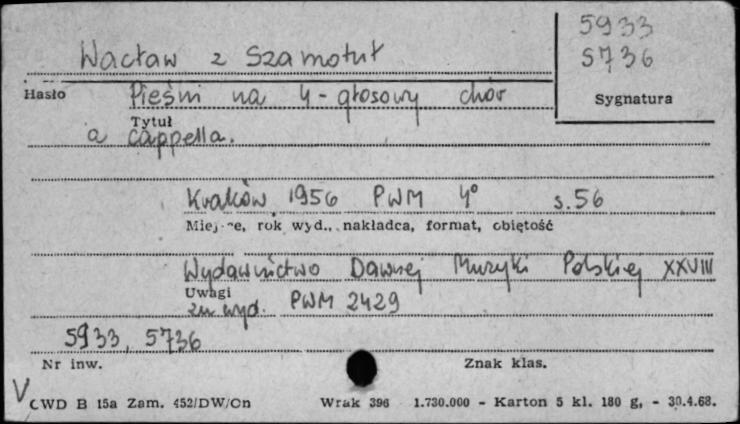 5933
Wacław z Szamotuł
5736
Hasło Pieśni na 4-głosowy chór
Sygnatura
Tytuł
a cappella.
Kraków 1956 PWM 4° s.56
Miejsce, rok wyd., nakładca, format, obiętość
Wydawnictwo Dawnej Muzyki Polskiej XXVIII
Uwagi
zn wyd. PWM 2429
5933, 5736
Nr inw. Znak klas.
V
CWD B 15a Zam. 452/DW/Cn Wrak 396 1.730.000 - Karton 5 kl. 180 g, - 30.4.68.